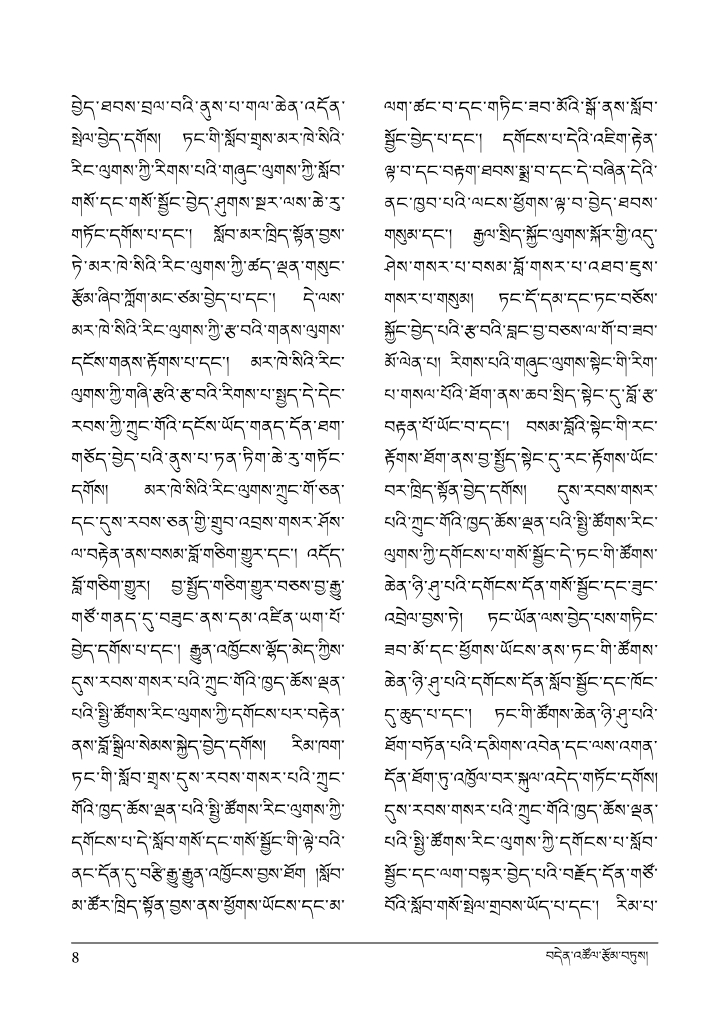 བྱེད་ཐབས་བྲལ་བའི་ནུས་པ་གལ་ཆེན་འདོན་
སྤེལ་བྱེད་དགོས།   ཏང་གི་སློབ་གྲྭས་མར་ཁེ་སིའི་
རིང་ལུགས་ཀྱི་རིགས་པའི་གཞུང་ལུགས་ཀྱི་སློབ་
གསོ་དང་གསོ་སྦྱོང་བྱེད་ཤུགས་སྔར་ལས་ཆེ་རུ་
གཏོང་དགོས་པ་དང་།   སློབ་མར་ཁྲིད་སྟོན་བྱས་
ཏེ་མར་ཁེ་སིའི་རིང་ལུགས་ཀྱི་ཚད་ལྡན་གསུང་
རྩོམ་ཞིབ་ཀློག་མང་ཙམ་བྱེད་པ་དང་།   དེ་ལས་
མར་ཁེ་སིའི་རིང་ལུགས་ཀྱི་རྩ་བའི་གནས་ལུགས་
དངོས་གནས་རྟོགས་པ་དང་།   མར་ཁེ་སིའི་རིང་
ལུགས་ཀྱི་གཞི་རྩའི་རྩ་བའི་རིགས་པ་སྤྱད་དེ་དེང་
རབས་ཀྱི་ཀྲུང་གོའི་དངོས་ཡོད་གནད་དོན་ཐག་
གཅོད་བྱེད་པའི་ནུས་པ་ཏན་ཏིག་ཆེ་རུ་གཏོང་
དགོས།   མར་ཁེ་སིའི་རིང་ལུགས་ཀྲུང་གོ་ཅན་
དང་དུས་རབས་ཅན་གྱི་གྲུབ་འབྲས་གསར་ཤོས་
ལ་བརྟེན་ནས་བསམ་བློ་གཅིག་གྱུར་དང་།   འདོད་
བློ་གཅིག་གྱུར།   བྱ་སྤྱོད་གཅིག་གྱུར་བཅས་བྱ་རྒྱུ་
གཙོ་གནད་དུ་བཟུང་ནས་དམ་འཛིན་ཡག་པོ་
བྱེད་དགོས་པ་དང་། རྒྱུན་འཁྱོངས་ལྷོད་མེད་ཀྱིས་
དུས་རབས་གསར་པའི་ཀྲུང་གོའི་ཁྱད་ཆོས་ལྡན་
པའི་སྤྱི་ཚོགས་རིང་ལུགས་ཀྱི་དགོངས་པར་བརྟེན་
ནས་བློ་སྒྲིལ་སེམས་སྐྱེད་བྱེད་དགོས།   རིམ་ཁག་
ཏང་གི་སློབ་གྲྭས་དུས་རབས་གསར་པའི་ཀྲུང་
གོའི་ཁྱད་ཆོས་ལྡན་པའི་སྤྱི་ཚོགས་རིང་ལུགས་ཀྱི་
དགོངས་པ་དེ་སློབ་གསོ་དང་གསོ་སྦྱོང་གི་ལྟེ་བའི་
ནང་དོན་དུ་བརྩི་རྒྱུ་རྒྱུན་འཁྱོངས་བྱས་ཐོག །སློབ་
མ་ཚོར་ཁྲིད་སྟོན་བྱས་ནས་ཕྱོགས་ཡོངས་དང་མ་
ལག་ཚང་བ་དང་གཏིང་ཟབ་མོའི་སྒོ་ནས་སློབ་
སྦྱོང་བྱེད་པ་དང་།   དགོངས་པ་དེའི་འཇིག་རྟེན་
ལྟ་བ་དང་བརྟག་ཐབས་སྨྲ་བ་དང་དེ་བཞིན་དེའི་
ནང་ཁུབ་པའི་ལངས་ཕྱོགས་ལྟ་བ་བྱེད་ཐབས་
གསུམ་དང་།   རྒྱལ་སྲིད་སྐྱོང་ལུགས་སྐོར་གྱི་འདུ་
ཤེས་གསར་པ་བསམ་བློ་གསར་པ་འཐབ་ཇུས་
གསར་པ་གསུམ།   ཏང་དོ་དམ་དང་ཏང་བཅོས་
སྐྱོང་བྱེད་པའི་རྩ་བའི་བླང་བྱ་བཅས་ལ་གོ་བ་ཟབ་
མོ་ལེན་པ། རིགས་པའི་གཞུང་ལུགས་སྟེང་གི་རིག་
པ་གསལ་པོའི་ཐོག་ནས་ཆབ་སྲིད་སྟེང་དུ་བློ་རྩ་
བརྟན་པོ་ཡོང་བ་དང་།   བསམ་བློའི་སྟེང་གི་རང་
རྟོགས་ཐོག་ནས་བྱ་སྤྱོད་སྟེང་དུ་རང་རྟོགས་ཡོང་
བར་ཁྲིད་སྟོན་བྱེད་དགོས།   དུས་རབས་གསར་
པའི་ཀྲུང་གོའི་ཁྱད་ཆོས་ལྡན་པའི་སྤྱི་ཚོགས་རིང་
ལུགས་ཀྱི་དགོངས་པ་གསོ་སྦྱོང་དེ་ཏང་གི་ཚོགས་
ཆེན་ཉི་ཤུ་པའི་དགོངས་དོན་གསོ་སྦྱོང་དང་ཟུང་
འབྲེལ་བྱས་ཏེ།   ཏང་ཡོན་ལས་བྱེད་པས་གཏིང་
ཟབ་མོ་དང་ཕྱོགས་ཡོངས་ནས་ཏང་གི་ཚོགས་
ཆེན་ཉི་ཤུ་པའི་དགོངས་དོན་སློབ་སྦྱོང་དང་ཁོང་
དུ་ཆུད་པ་དང་།   ཏང་གི་ཚོགས་ཆེན་ཉི་ཤུ་པའི་
ཐོག་བཏོན་པའི་དམིགས་འབེན་དང་ལས་འགན་
དོན་ཐོག་ཏུ་འཁྱོལ་བར་སྐུལ་འདེད་གཏོང་དགོས།
དུས་རབས་གསར་པའི་ཀྲུང་གོའི་ཁྱད་ཆོས་ལྡན་
པའི་སྤྱི་ཚོགས་རིང་ལུགས་ཀྱི་དགོངས་པ་སློབ་
སྦྱོང་དང་ལག་བསྟར་བྱེད་པའི་བརྗོད་དོན་གཙོ་
བོའི་སློབ་གསོ་སྤེལ་གྲབས་ཡོད་པ་དང་།   རིམ་པ་
8   བདེན་འཚོལ་རྩོམ་བཏུས།